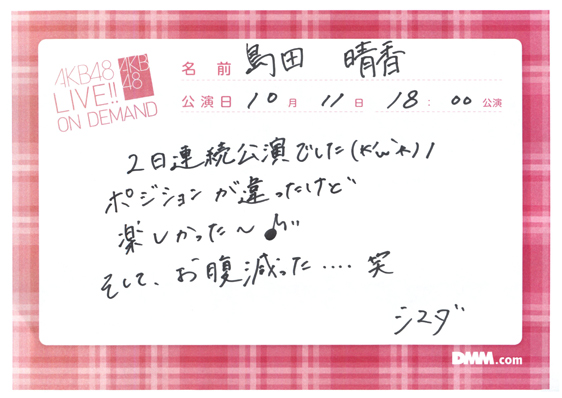 AKB48
LIVE!!
ON DEMAND
AKB
48
名 前 島田 晴香
公演日 10 月 11 日 18 : 00 公演
2日連続公演でした(*'ω'*)!
ポジションが違ったけど
楽しかった〜♪"
そして、お腹減った.... 笑
シマダ
DMM.com